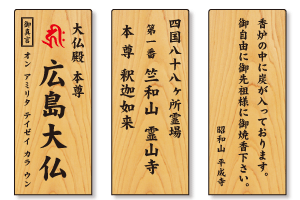 大仏殿 本尊
キリーク
広島大仏
御真言
オン アミリタ テイゼイ カラ ウン
四国八十八ヶ所霊場
第一番 竺和山 霊山寺
本尊 釈迦如来
香炉の中に炭が入っております。
御自由に御先祖様に御焼香下さい。
昭和山 平成寺